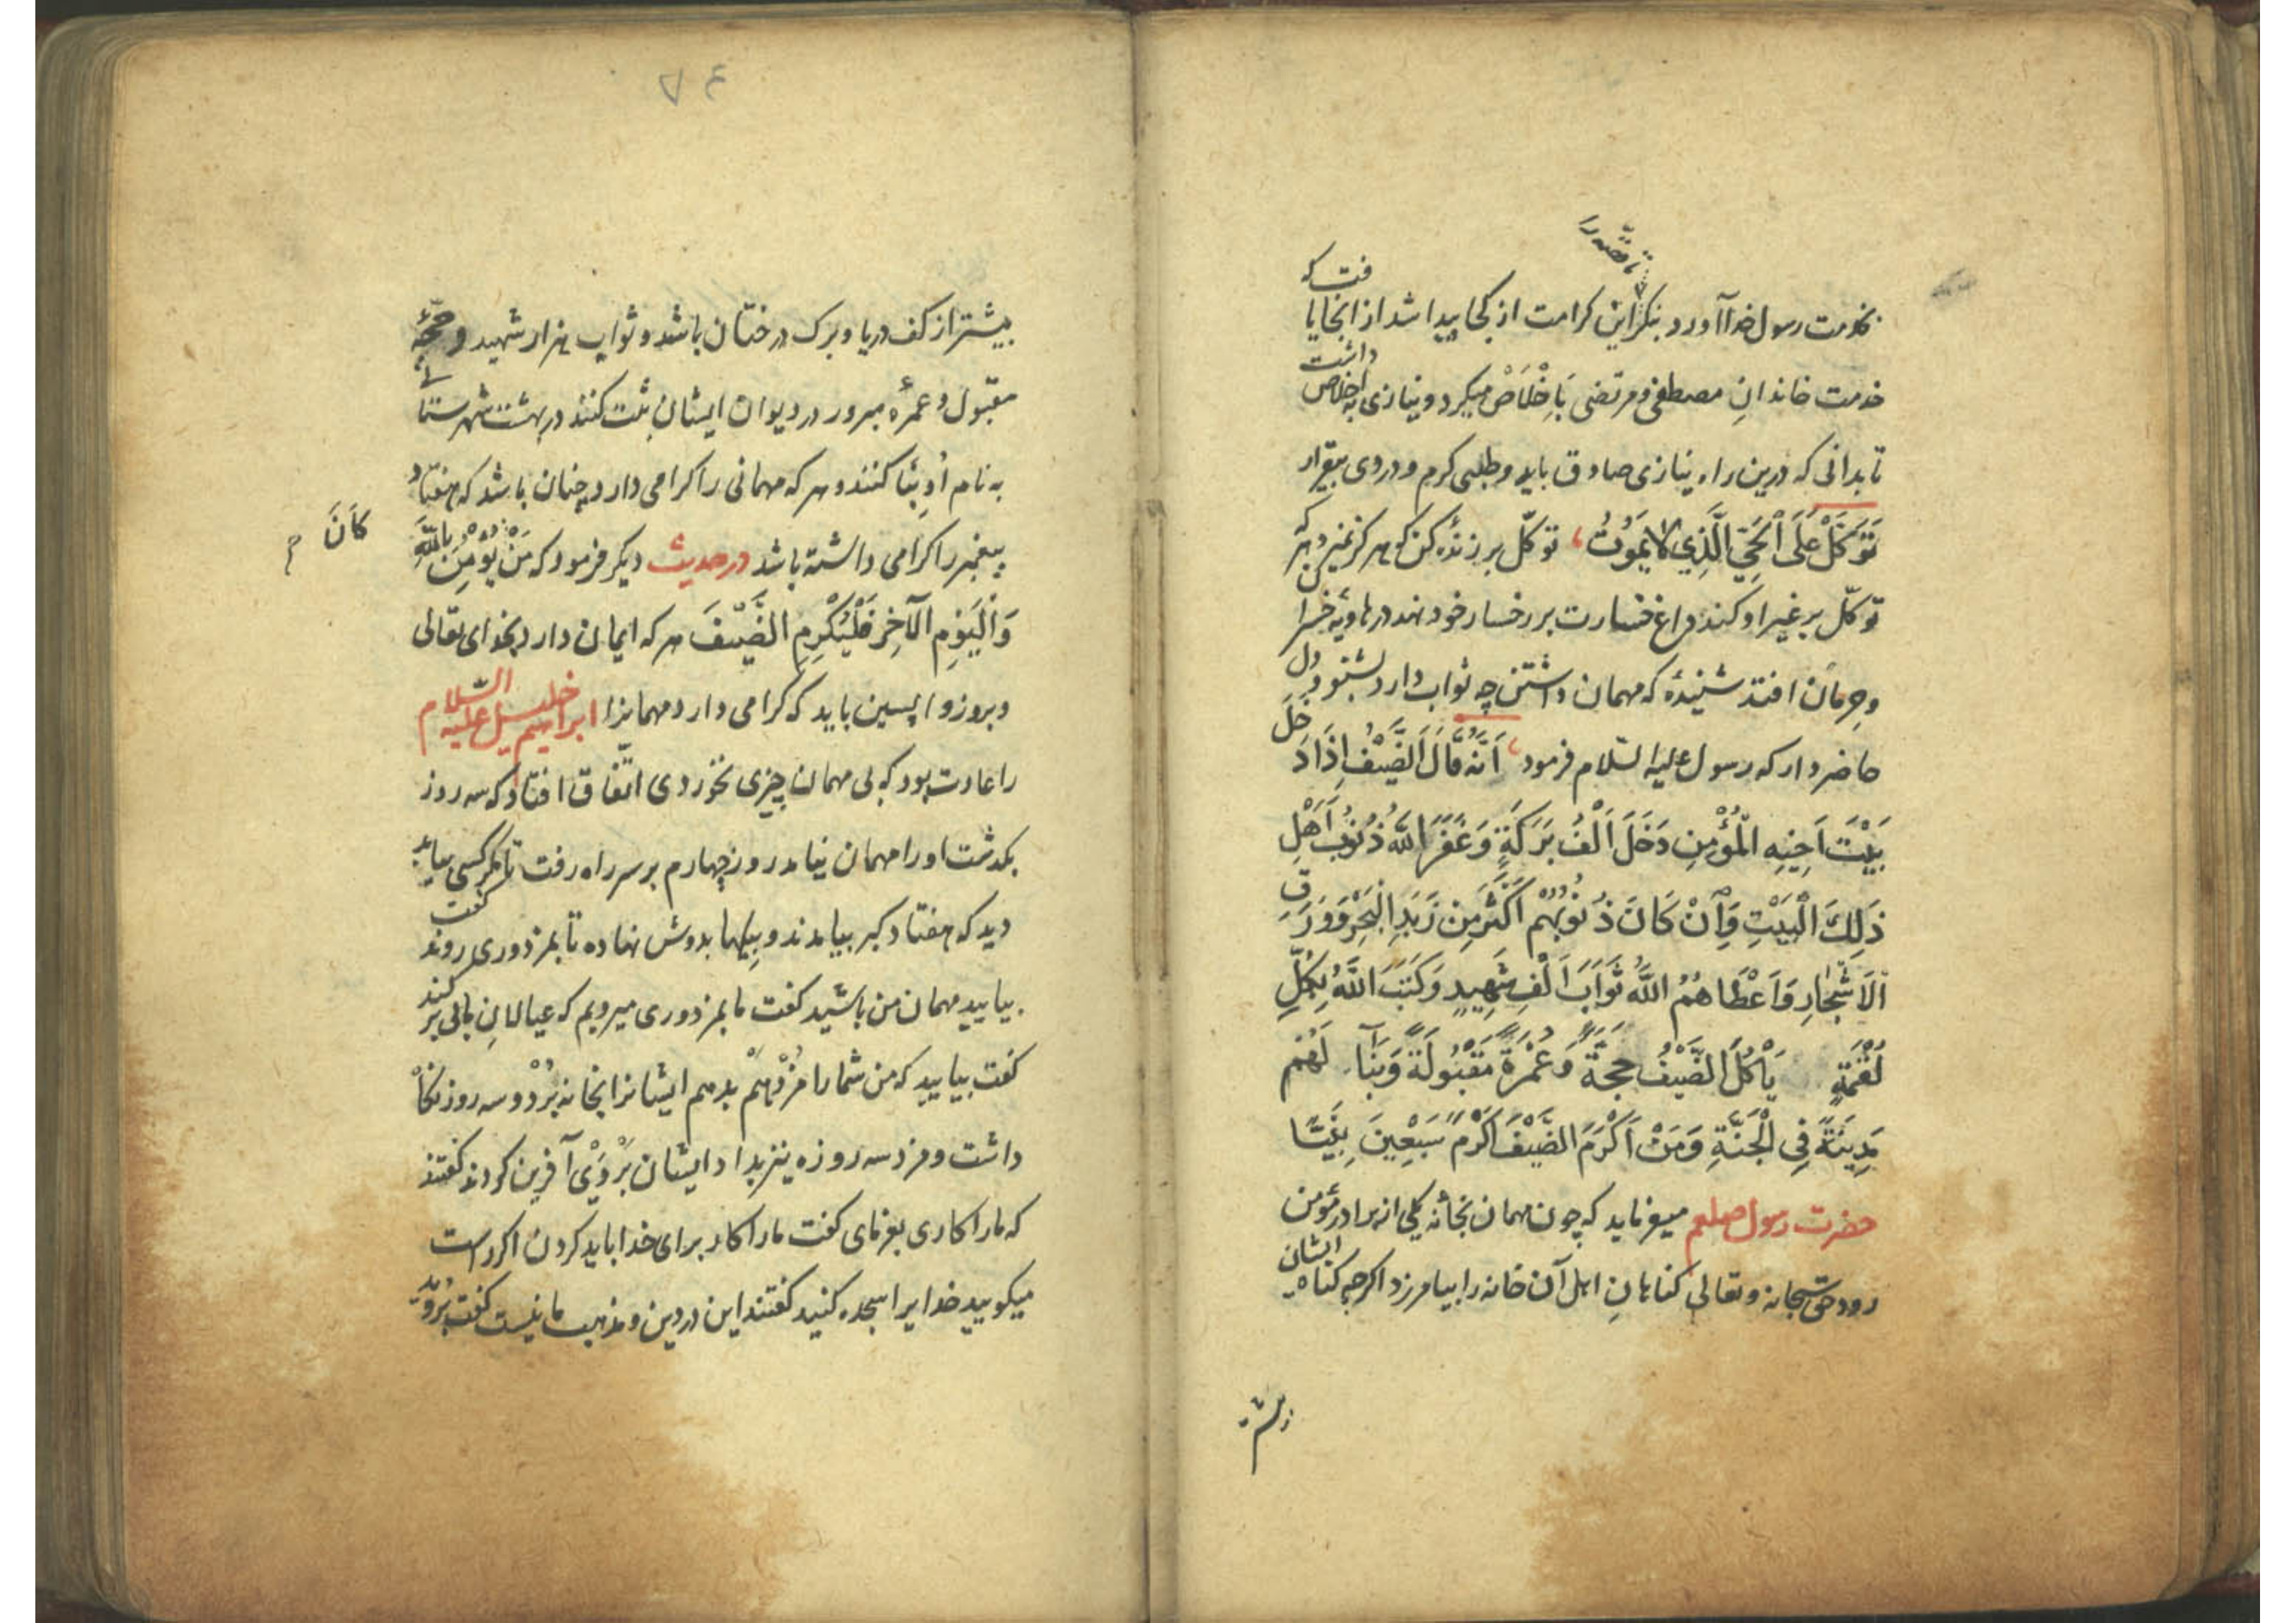 بخدمت رسول خدا آورد بنگر این کرامت از کجا پیدا شد از انجا یافت که
خدمت خاندانِ مصطفی و مرتضی بَاِخْلَاصْ میکرد و نیازی به اخلاص داشت
تا بدانی که درین راه نیازی صادق باید و طلبی کرم و دردی بیقرار
تَوَكَّلْ عَلَى الْحَيِّ الَّذِي لَا يَمُوتُ توکّل بر زندهٔ کن که هرکز نمیرد هر که
توکّل بر غیر او کند داغ خسارت بر رخسار خود نهد در هاویهٔ خسران
وحِرمان افتد شنیدهٔ که مهمان داشتن چه ثواب دارد بشنو دل
حاضر دار که رسول علیه السّلام فرمود اَنَّهُ قَالَ اَلضَّيْفُ اِذَا دَخَلَ
بَيْتَ اَخِيْهِ الْمُؤْمِنِ دَخَلَ اَلْفُ بَرَكَةٍ وَغَفَرَ اللّٰهُ ذُنُوْبَ اَهْلِ
ذَلِكَ الْبَيْتِ وَاِنْ كَانَ ذُنُوْبُهُمْ اَكْثَرَ مِنْ زَبَدِ الْبَحْرِ وَوَرَقِ
اَلْاَشْجَارِ وَاَعْطَاهُمُ اللّٰهُ ثَوَابَ اَلْفِ شَهِيدٍ وَكَتَبَ اللّٰهُ بِكُلِّ
لُقْمَةٍ يَأْكُلُ الضَّيْفُ حِجَّةً وَعُمْرَةً مَقْبُولَةً وَبَنَا لَهُمْ
مَدِينَةً فِي الْجَنَّةِ وَمَنْ اَكْرَمَ الضَّيْفَ اَكْرَمَ سَبْعِينَ نَبِيًّا
حضرت رسول صلعم میفرماید که چون مهمان بخانه یکی از برادر مؤمن
رود حقّ سبحانه وتعالی کناهانِ اهل آن خانه را بیامرزد اکرچه کناه ایشان
٧٤
بیشتر از کف دریا و برک درختان باشد و ثواب هزار شهید و حجّهٔ
مقبول و عمرهٔ مبرور در دیوان ایشان ثبت کنند در بهشت شهرستانی
به نام او بنا کنند و هر که مهمانی را کرامی دارد چنان باشد که هفتاد
پیغمبر را کرامی داشته باشد در حدیث دیکر فرمود که مَنْ يُؤْمِنُ بِاللّٰهِ
كَانَ
وَالْيَوْمِ الْآخِرِ فَلْيُكْرِمِ الضَّيْفَ هر که ایمان دارد بخدای تعالی
و بروز واپسین باید که کرامی دارد مهمانرا ابراهیم خلیل علیه السّلام
را عادت بود که بی مهمان چیزی نخوردی اتّفاق افتاد که سه روز
بکذشت او را مهمان نیامد روز چهارم بر سر راه رفت تا مکر کسی بیاید
دید که هفتاد کبر بیامدند و بیلها بدوش نهاده تا بمزدوری روند گفت
بیایید مهمان من باشید کفت ما بمزدوری میرویم که عیالانِ ما بی برکند
کفت بیایید که من شما را مزد هم بدهم ایشانرا بخانه بُرْد و سه روز نکاه
داشت و مزد سه روزه نیز بداد ایشان بَرْ وَیْ آفرین کردند کفتند
که ما را کاری بفرمای کفت ما را کار برای خدا باید کردن اکر راست
میکویید خدایرا سجده کنید کفتند این در دین و مذهب ما نیست کفت